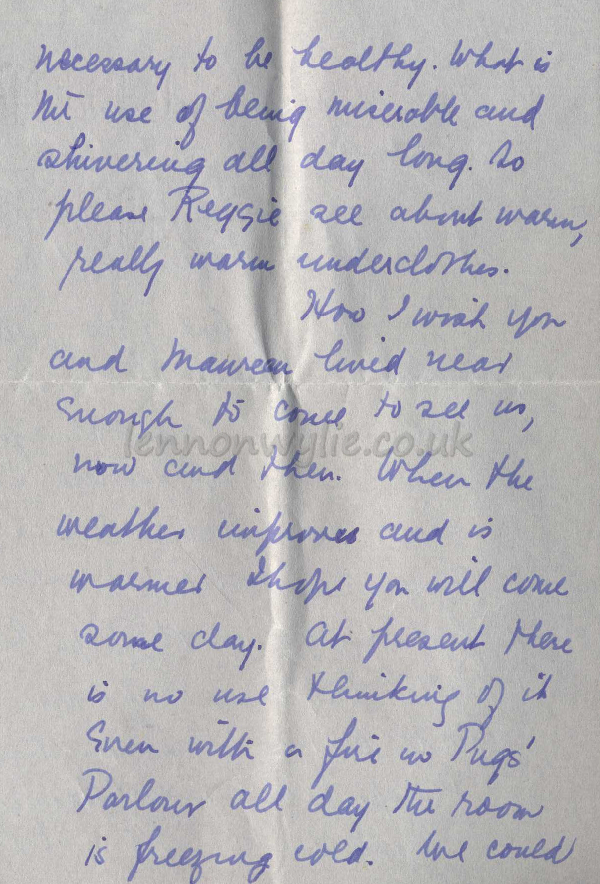 necessary to be healthy. What is
the use of being miserable and
shivering all day long. So
please Reggie see about warm,
really warm underclothes.
How I wish you
and Maureen lived near
enough to come to see us,
lennonwylie.co.uk
now and then. When the
weather improves and is
warmer I hope you will come
some day. At present there
is no use thinking of it
Even with a fire in Pugs'
Parlour all day the room
is freezing cold. We could